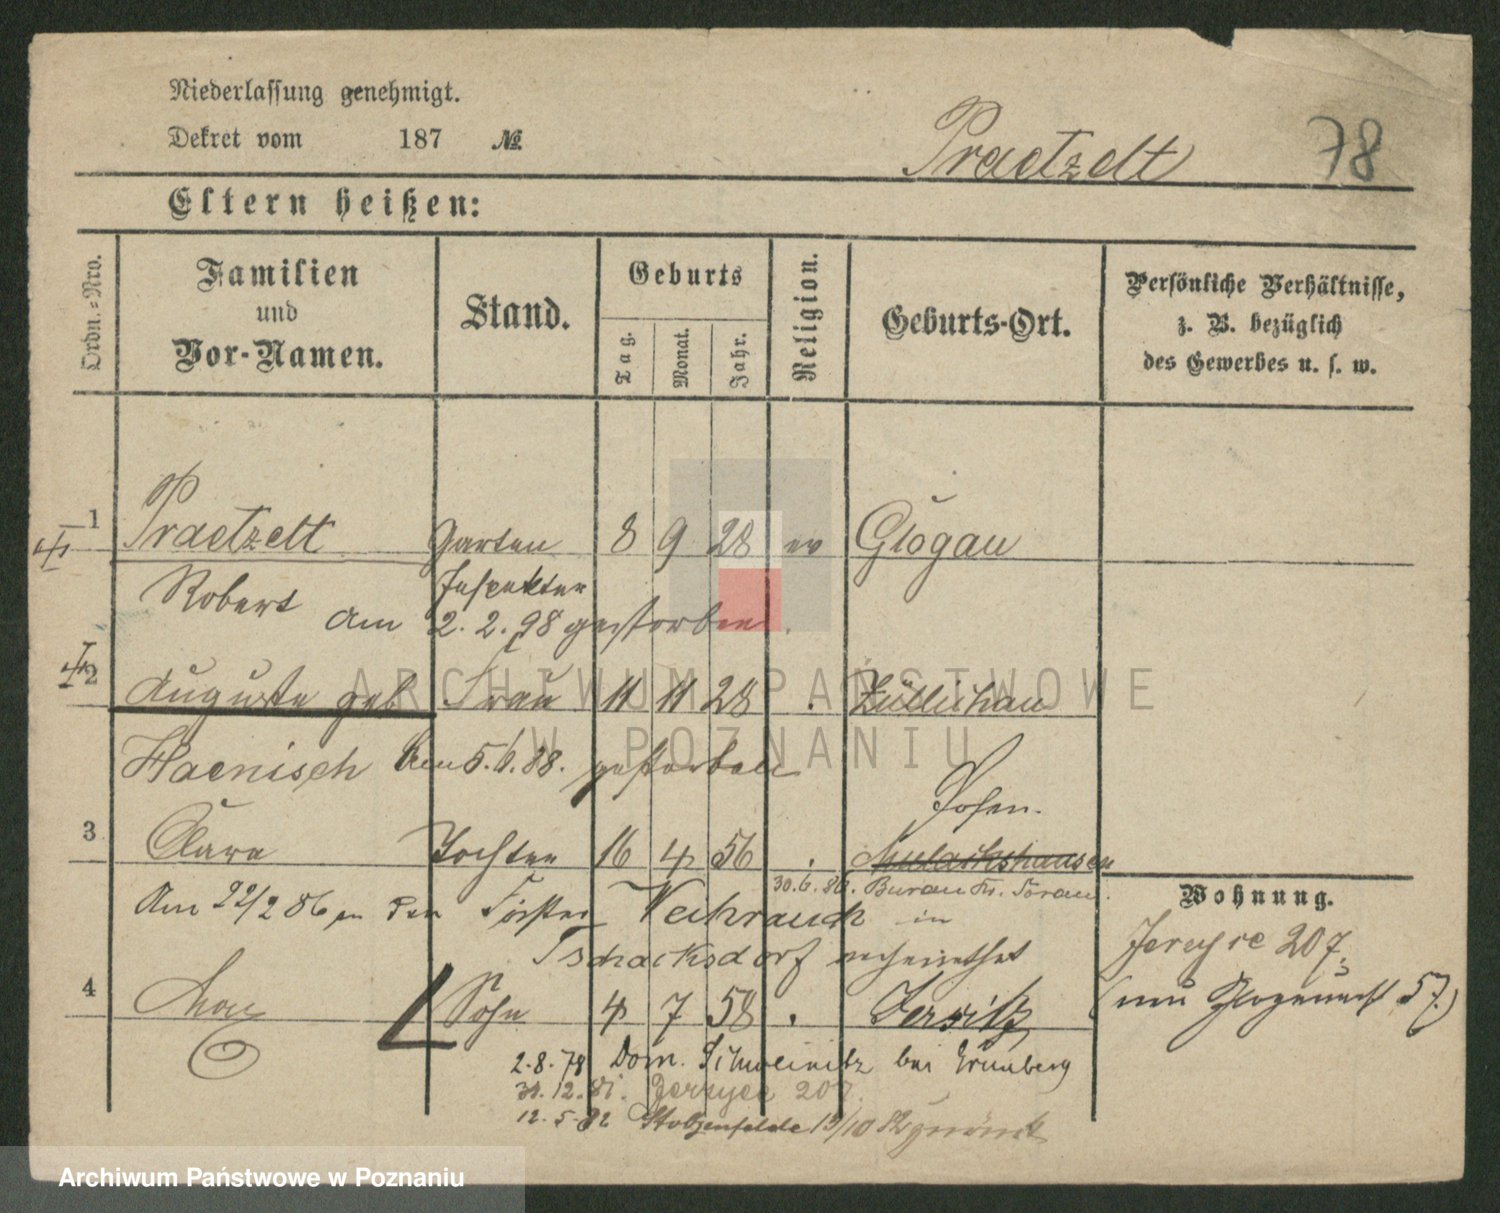 Niederlassung genehmigt.
Dekret vom 187 №
Praetzelt 78
Eltern heißen:
Ordn.-Nro.
Familien
und
Vor-Namen.
Stand.
Geburts
Tag.
Monat.
Jahr.
Religion.
Geburts-Ort.
Persönliche Verhältnisse,
z. B. bezüglich
des Gewerbes u. s. w.
1 Praetzelt Garten 8 9 28 ev Glogau
Robert Inspektor
am 2. 2. 98 gestorben.
2 Auguste geb Frau 11 11 28 . Züllichau
Haenisch am 5. 6. 88. gestorben
Posen.
3 Clara Tochter 16 4 56 .
30. 6. 86. Sorau.
Am 22/2 86 an den Förster Weihrauch in
Tschacksdorf verheirathet
Wohnung.
Jerzyce 207.
4 Max Sohn 4 7 58 . Jersitz
(nun 57.)
2.8.78 Dom. Schweinitz bei Grünberg
30.12.81. Jerzyce 207.
12.5.82 Stolzenfelde 19/10 82 zurück
ARCHIWUM PAŃSTWOWE
W POZNANIU
Archiwum Państwowe w Poznaniu